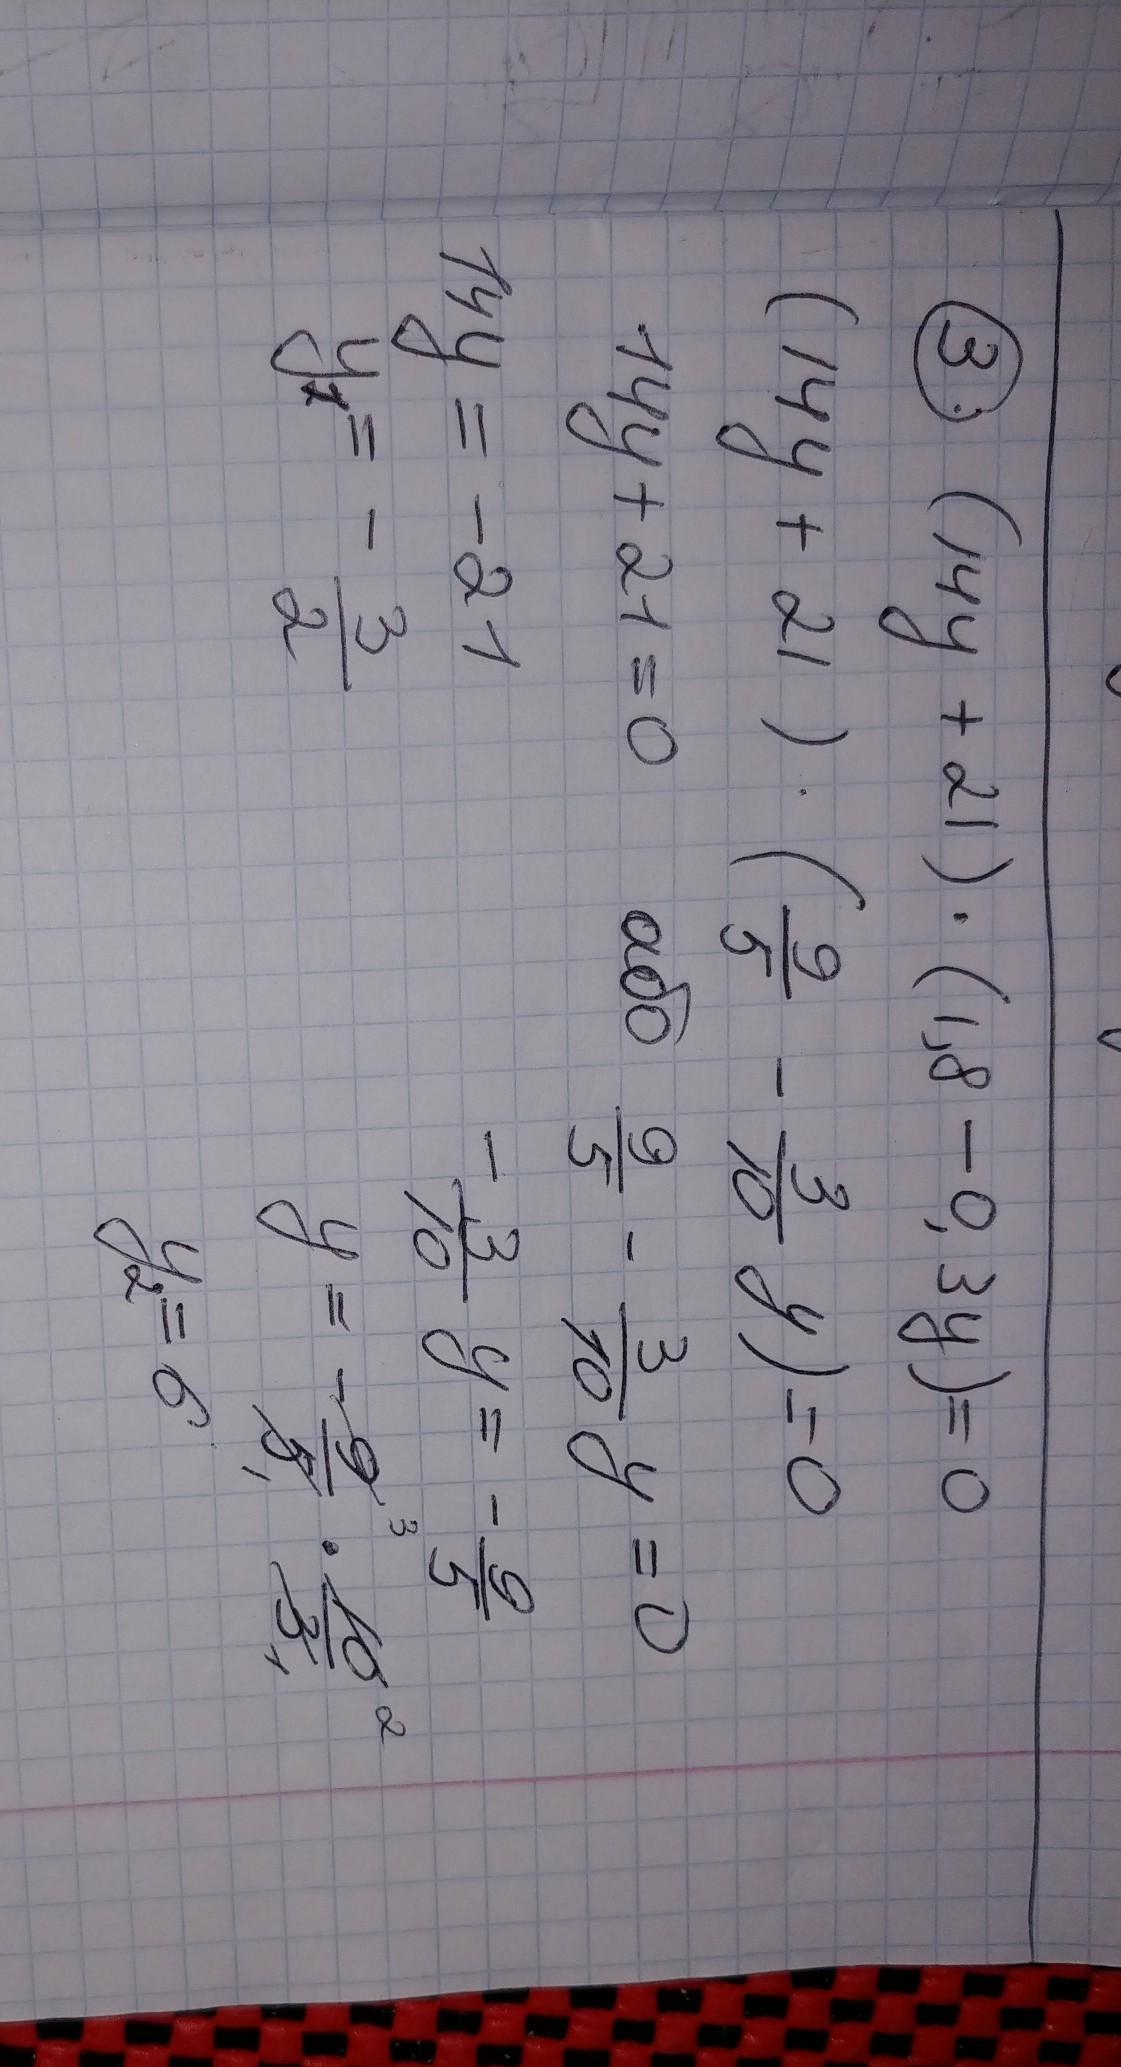 3. (14y + 21) · (1,8 - 0,3y) = 0
(14y + 21) · (9/5 - 3/10 y) = 0
14y + 21 = 0 або 9/5 - 3/10 y = 0
14y = -21 - 3/10 y = - 9/5
y1 = - 3/2 y = - 9/5 · 10/3 3 1 2 1
y2 = 6